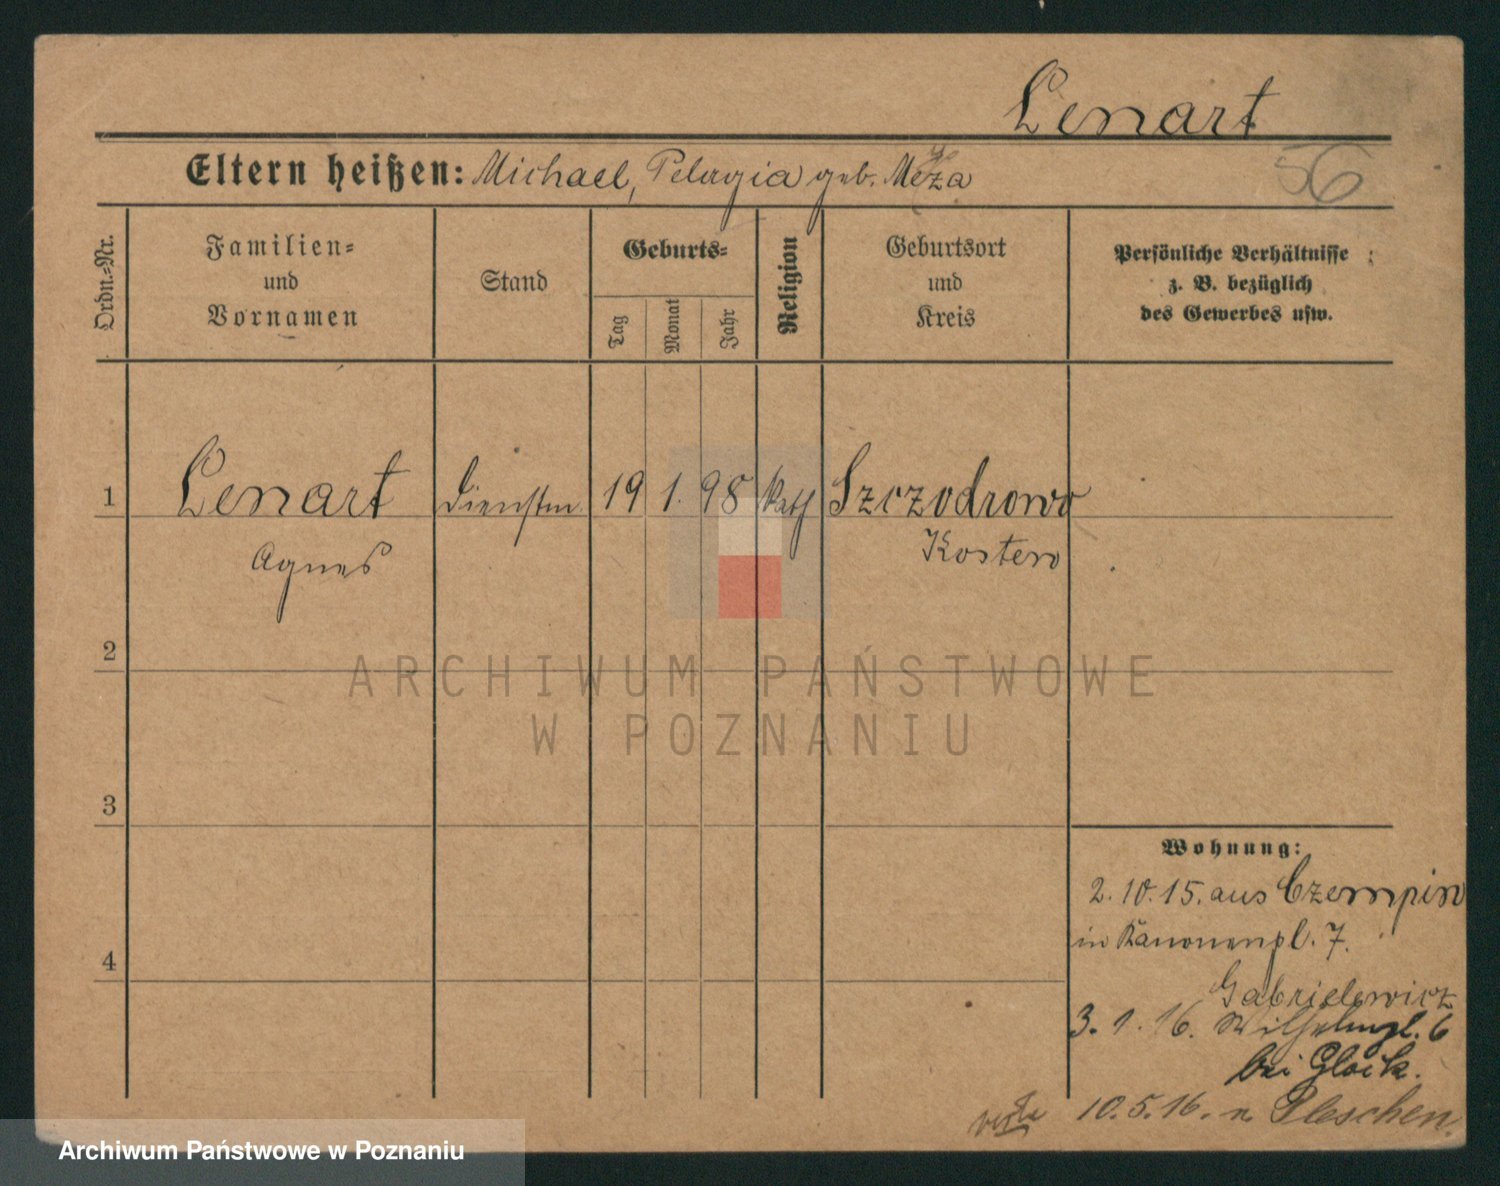 Lenart
Eltern heißen: Michael, Pelagia geb. Meza
56
Ordn.-Nr.
Familien-
und
Vornamen
Stand
Geburts-
Tag
Monat
Jahr
Religion
Geburtsort
und
Kreis
Persönliche Verhältnisse
z. B. bezüglich
des Gewerbes usw.
1 Lenart Dienstm. 19 1. 98 kath Szczodrowo
Agnes Kosten
2
3
4
Wohnung:
2. 10. 15. aus Czempin
in Kanonenpl. 7.
Gabrielewicz
3. 1. 16. Wilhelmpl. 6
bei Glock.
10. 5. 16. n. Pleschen.
ARCHIWUM PAŃSTWOWE
W POZNANIU
Archiwum Państwowe w Poznaniu